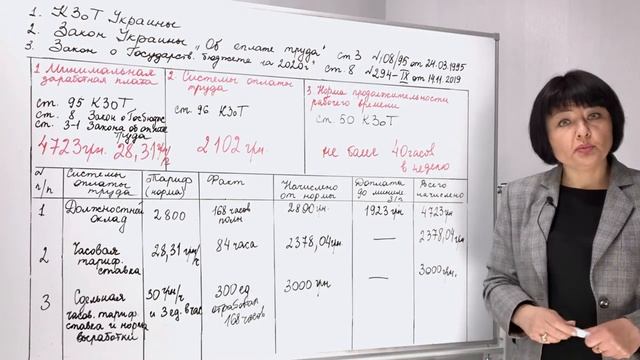 1. КЗоТ Украины
2. Закон Украины „Об оплате труда" ст 3 №108/95 от 24.03.1995
3. Закон о Государств. бюджете на 2020г" ст. 8 №294-IX от 14.11.2019
1 Минимальная
заработная плата
ст. 95 КЗоТ
ст. 8 Закон о Госбюдж
ст. 3-1 Закона об оплате
труда
4723грн. 28,31 грн/ч
2. Системы оплаты
труда
ст. 96 КЗоТ
2102 грн.
3 Норма продолжительности
рабочего времени
ст. 50 КЗоТ
не более 40 часов
в неделю
№ п/п
Системы оплаты труда
Тариф (норма)
Факт
Начислено от нормы
Доплата до миним з/п
Всего начислено
1
Должностной оклад
2800
168 часов полн
2800 грн.
1923 грн
4723 грн
2
Часовая тариф. ставка
28,31 грн/ч
84 часа
2378,04грн.
—
2378,04грн
3
Сдельная часов. тариф ставка и норма выработки
30 грн/ч и 3 ед. в час
300 ед отработал 168 часов
3000 грн
—
3000 грн.